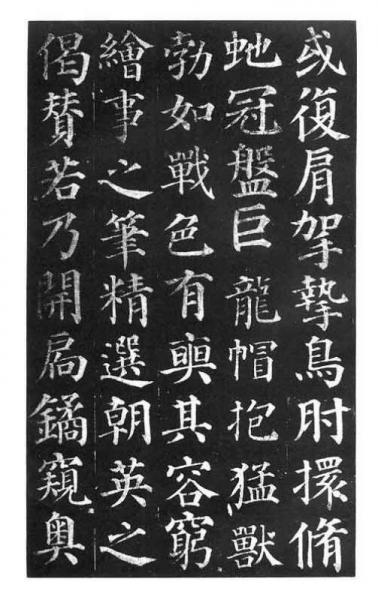 或復肩挐摯鳥肘擐脩
虵冠盤巨龍帽抱猛獸
勃如戰色有奭其容窮
繪事之筆精選朝英之
偈贊若乃開扃鐍窺奧